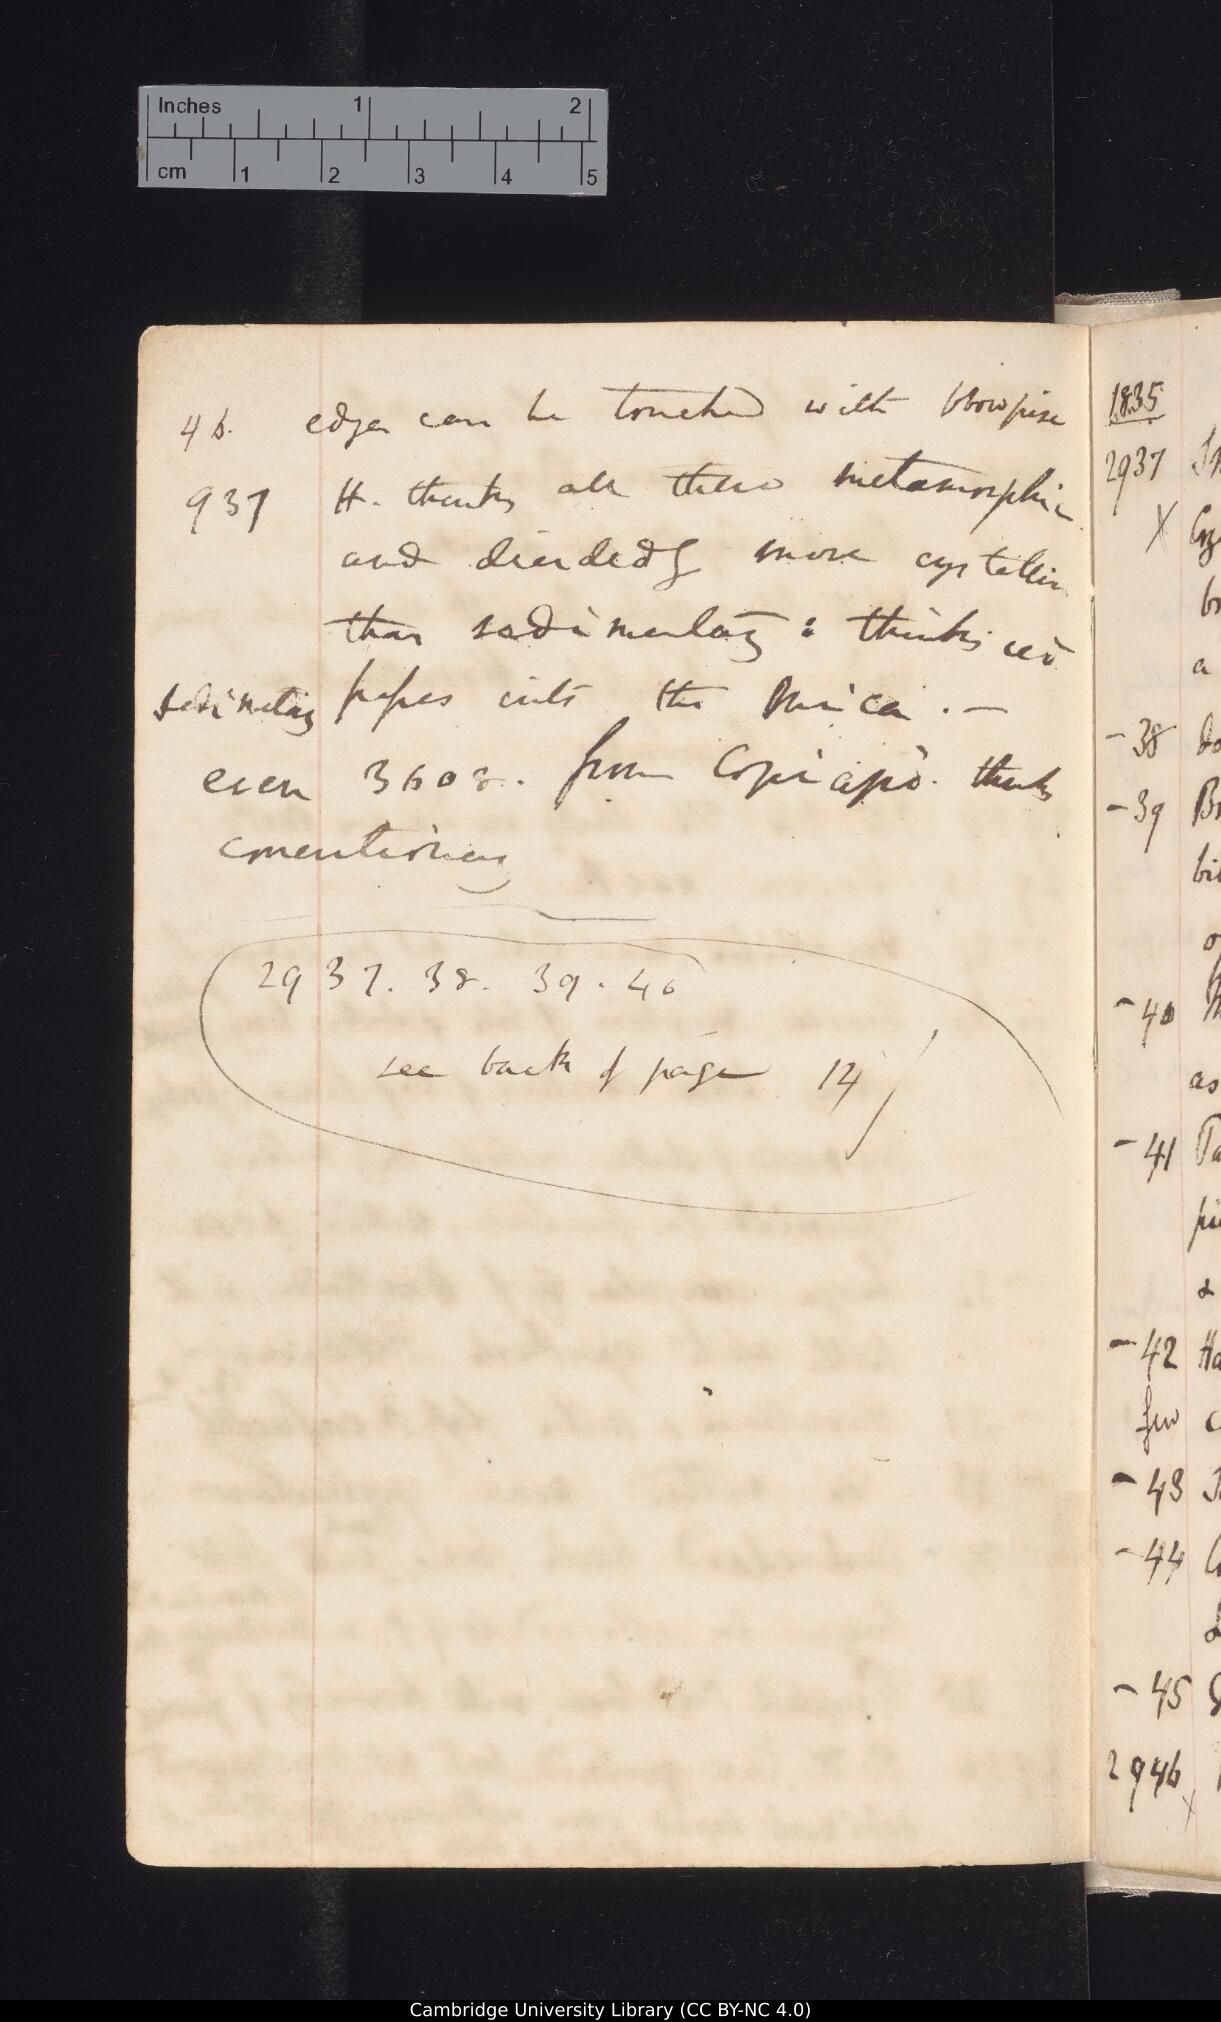 Inches 1 2
cm 1 2 3 4 5
46. edges can be touched with blowpipe
937 H. thinks all these metamorphic
and decidedly more crystallin
than sedimentary: thinks
sedimentary passes into the Mica. —
even 3608. from Copiapò. thinks
2937. 38. 39. 40
see back of page 14
1835
2937
X
br
a
- 38 do
- 39 Br
bi
- 40
as
- 41
&
- 42 Ha
few c
- 43
- 44
- 45
2946
x
Cambridge University Library (CC BY-NC 4.0)